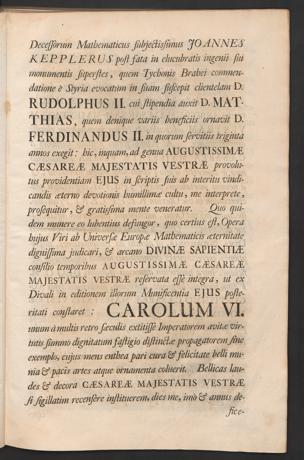 Decessorum Mathematicus subjectissimus JOANNES
KEPPLERUS post fata in elucubratis ingenii sui
monumentis superstes, quem Tychonis Brahei commen-
datione è Styria evocatum in suam suscepit clientelam D.
RUDOLPHUS II. cui stipendia auxit D. MAT-
THIAS, quem denique variis beneficiis ornavit D.
FERDINANDUS II. in quorum servitiis triginta
annos exegit: hic, inquam, ad genua AUGUSTISSIMÆ
CÆSAREÆ MAJESTATIS VESTRÆ provolu-
tus providentiam EJUS in scriptis suis ab interitu vindi-
candis æterno devotionis humillimæ cultu, me interprete,
prosequitur, & gratissima mente veneratur. Quo qui-
dem munere eo lubentius defungor, quo certius est, Opera
hujus Viri ab Universæ Europæ Mathematicis æternitate
dignissima judicari, & arcano DIVINÆ SAPIENTIÆ
consilio temporibus AUGUSTISSIMÆ CÆSAREÆ
MAJESTATIS VESTRÆ reservata esse integra, ut ex
Divali in editionem illorum Munificentia EJUS poste-
ritati constaret: CAROLUM VI.
unum à multis retro sæculis extitisse Imperatorem avitæ vir-
tutis summo dignitatum fastigio distinctæ propagatorem sine
exemplo, cujus mens enthea pari cura & felicitate belli mu-
nia & pacis artes atque ornamenta coluerit. Bellicas lau-
des & decora CÆSAREÆ MAJESTATIS VESTRÆ
si sigillatim recensere instituerem, dies me, imò & annus de-
fice-